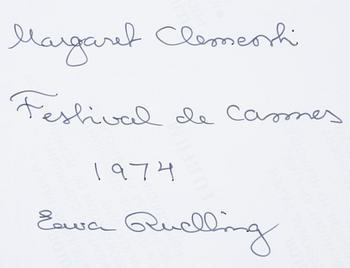 Margaret Clementi
Festival de Cannes
1974
Ewa Rudling